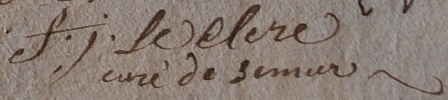 f. j. le clerc
curé de semur